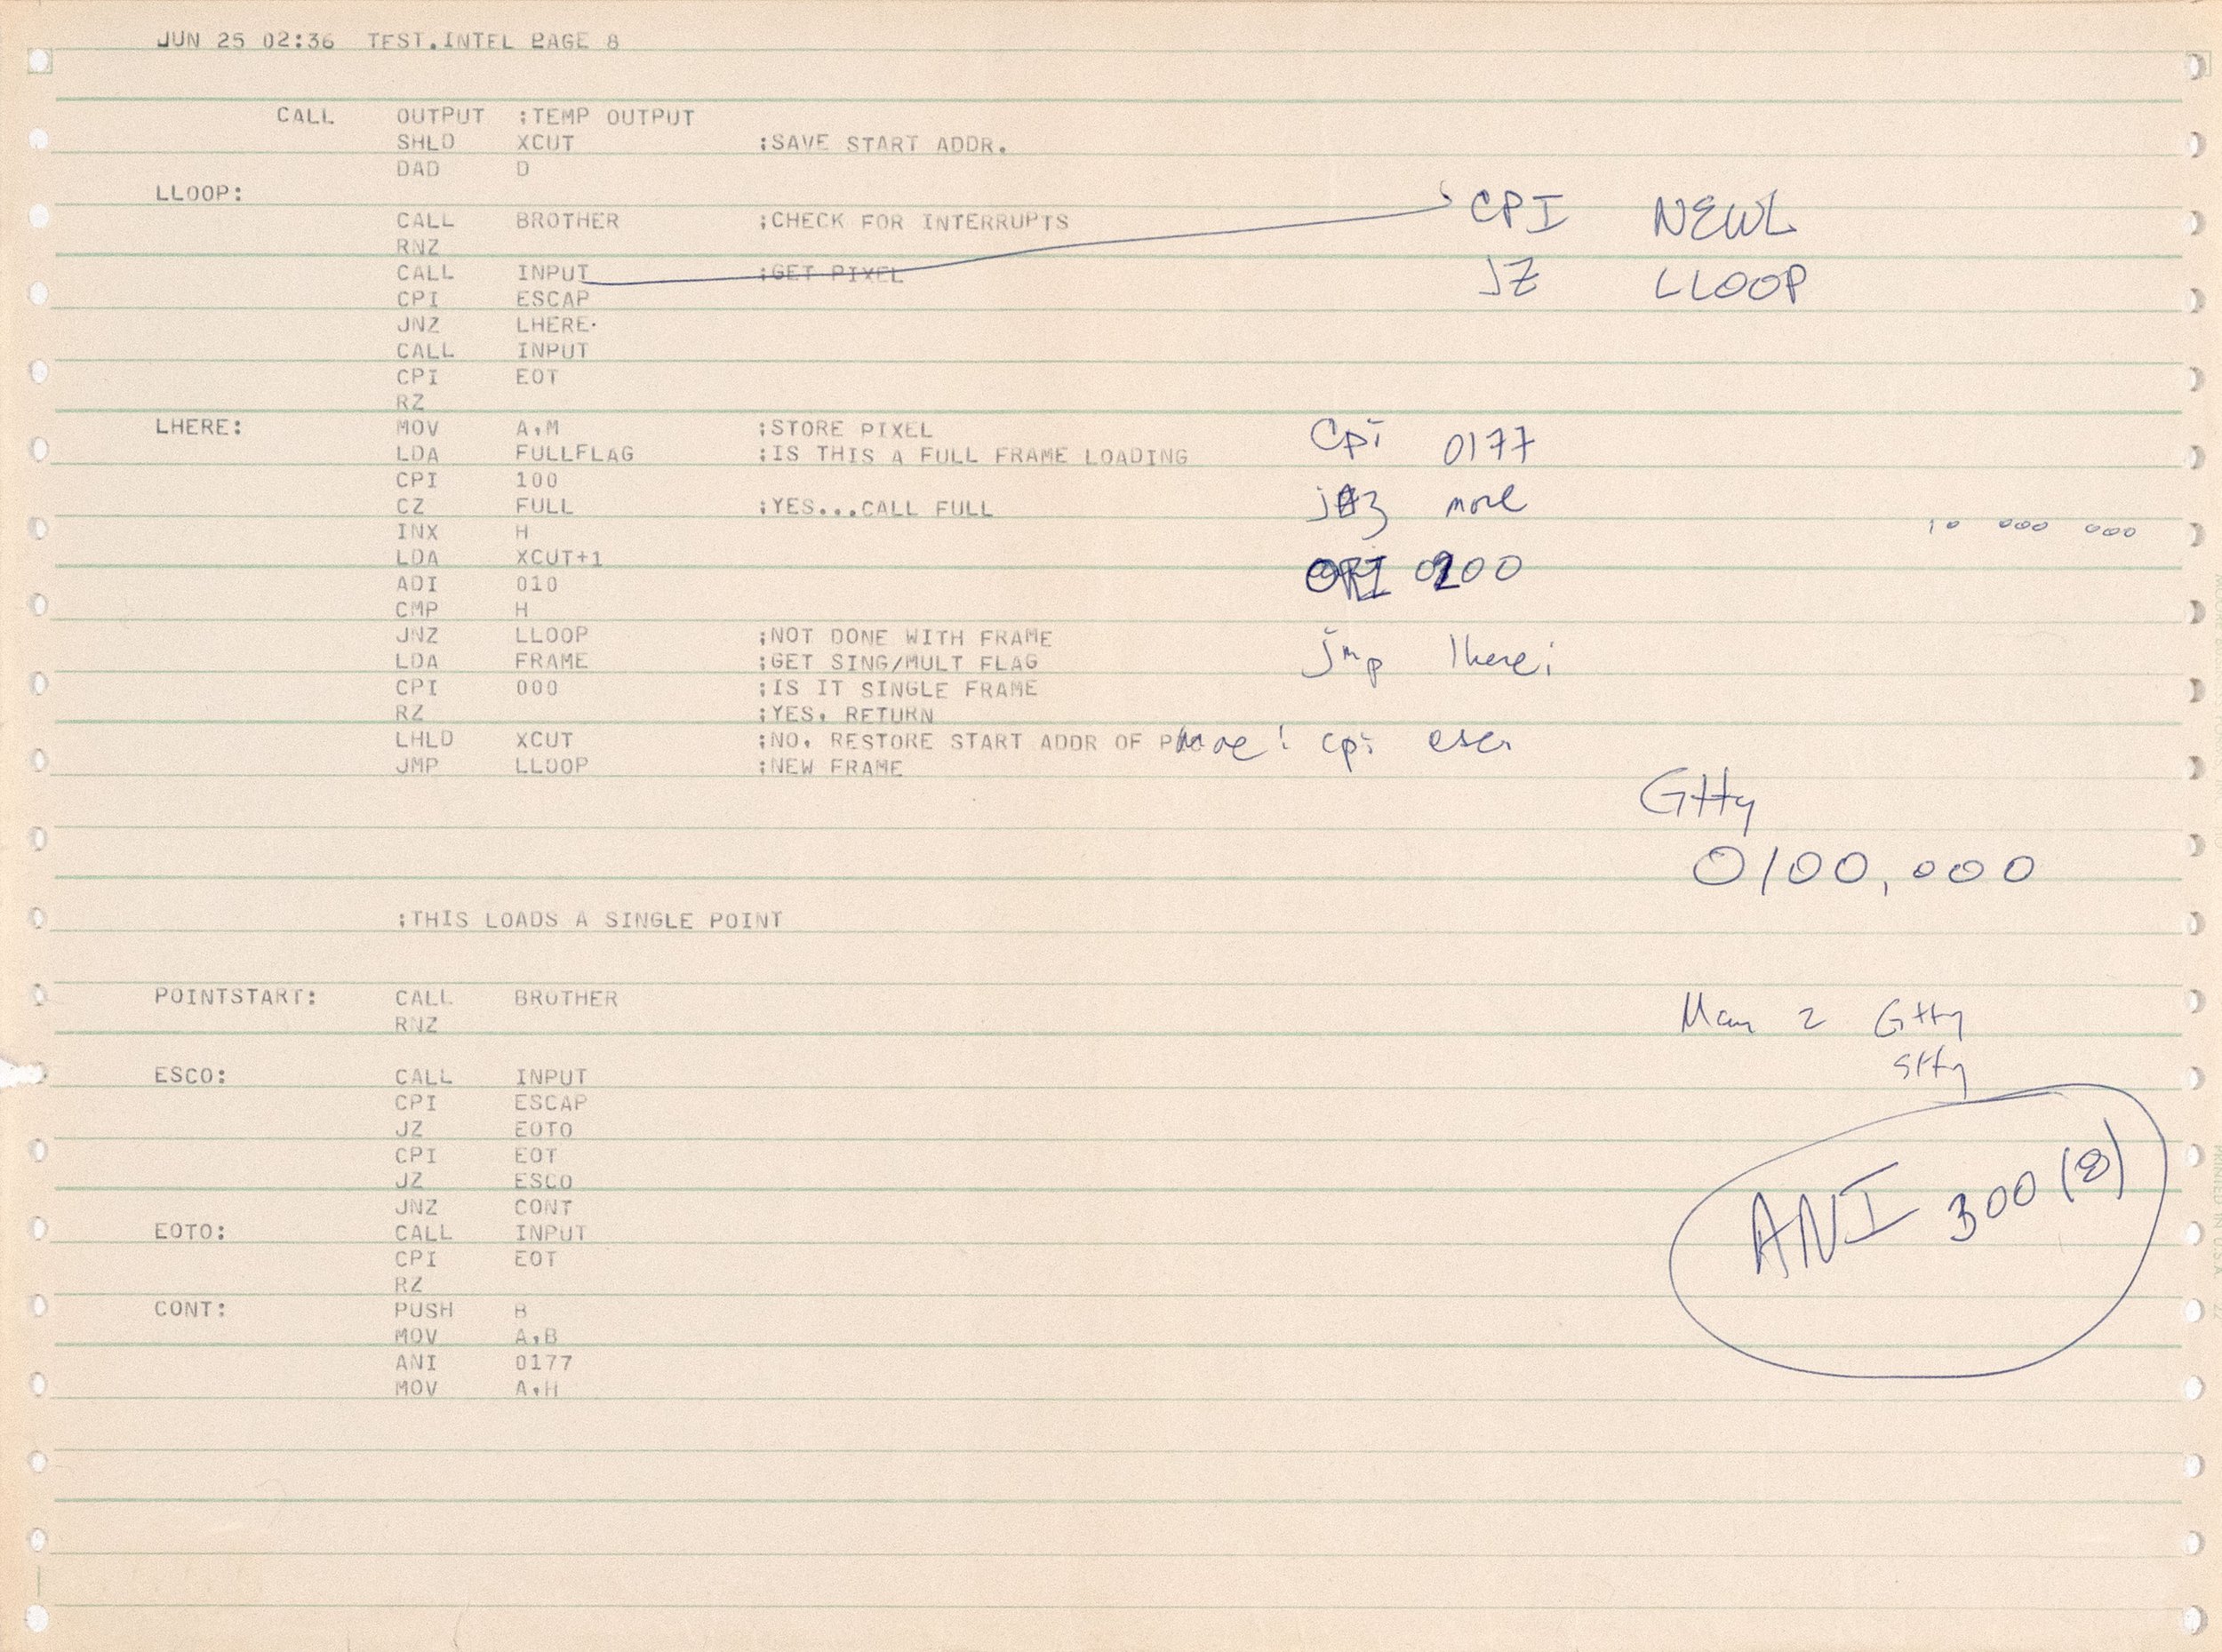 JUN 25 02:36 TEST.INTEL PAGE 8
CALL OUTPUT ;TEMP OUTPUT
SHLD XCUT ;SAVE START ADDR.
DAD D
LLOOP:
CALL BROTHER ;CHECK FOR INTERRUPTS
RNZ
CALL INPUT ;GET PIXEL
CPI NEWL
JZ LLOOP
CPI ESCAP
JNZ LHERE
CALL INPUT
CPI EOT
RZ
LHERE: MOV A,M ;STORE PIXEL
LDA FULLFLAG ;IS THIS A FULL FRAME LOADING
CPI 100
CZ FULL ;YES...CALL FULL
INX H
LDA XCUT+1
ADI 010
CMP H
JNZ LLOOP ;NOT DONE WITH FRAME
LDA FRAME ;GET SING/MULT FLAG
CPI 000 ;IS IT SINGLE FRAME
RZ ;YES, RETURN
LHLD XCUT ;NO, RESTORE START ADDR OF
JMP LLOOP ;NEW FRAME
Cpi 0177
more
ORI 0200
jmp lhere;
more: cpi
10 000 000
Gtty
0100,000
;THIS LOADS A SINGLE POINT
POINTSTART: CALL BROTHER
RNZ
ESCO: CALL INPUT
CPI ESCAP
JZ EOTO
CPI EOT
JZ ESCO
JNZ CONT
EOTO: CALL INPUT
CPI EOT
RZ
CONT: PUSH B
MOV A,B
ANI 0177
MOV A,H
Man 2 Gtty
Stty
ANI 300 (8)
PRINTED IN U.S.A.